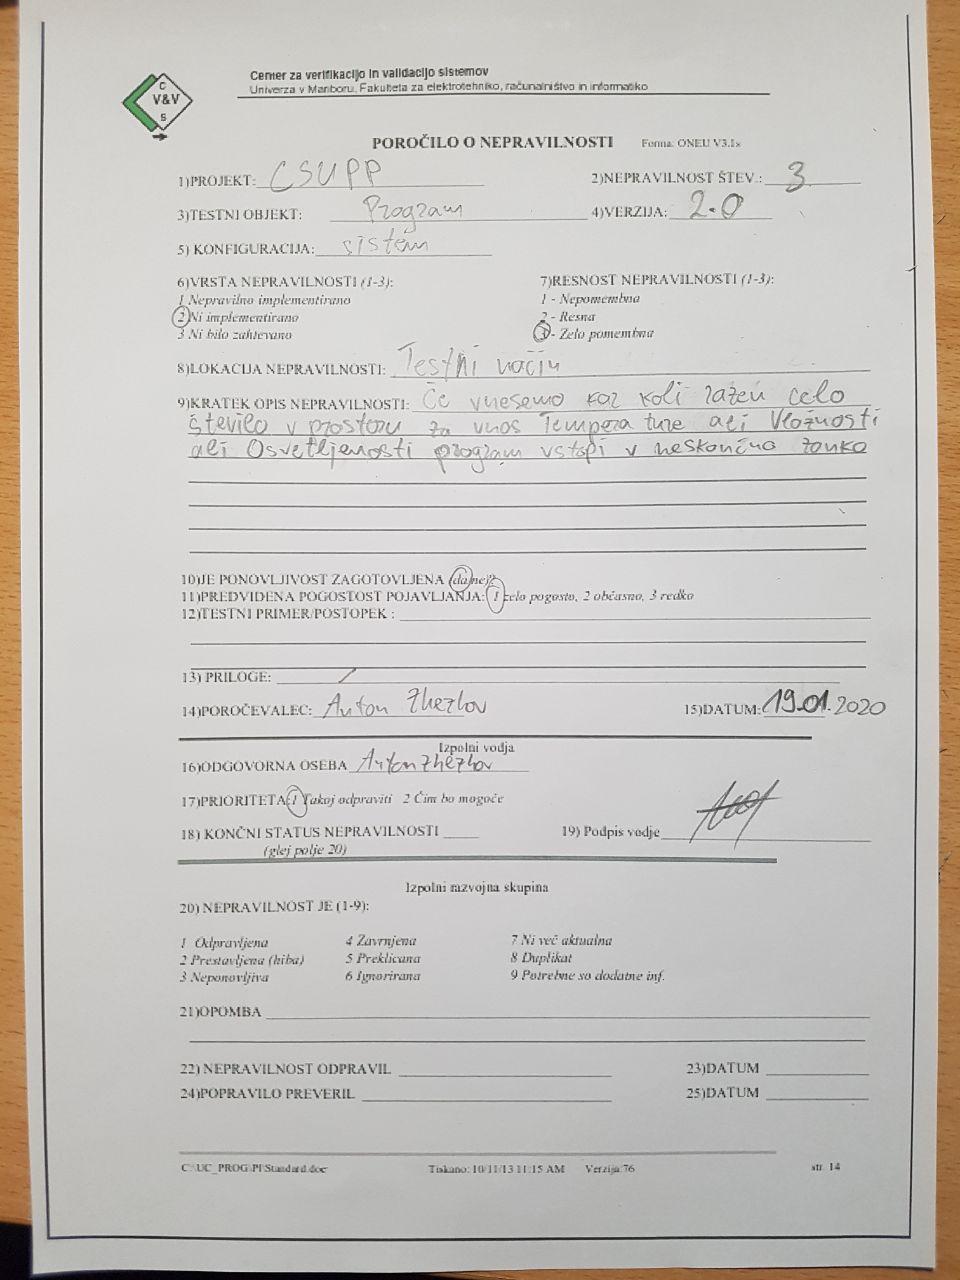 C
V&V
S
Center za verifikacijo in validacijo sistemov
Univerza v Mariboru, Fakulteta za elektrotehniko, računalništvo in informatiko
POROČILO O NEPRAVILNOSTI Forma: ONEU V3.1s
1)PROJEKT: CSUPP 2)NEPRAVILNOST ŠTEV.: 3
3)TESTNI OBJEKT: Program 4)VERZIJA: 2.0
5) KONFIGURACIJA: sistem
6)VRSTA NEPRAVILNOSTI (1-3): 7)RESNOST NEPRAVILNOSTI (1-3):
1 Nepravilno implementirano 1 - Nepomembna
2 Ni implementirano 2 - Resna
3 Ni bilo zahtevano 3 - Zelo pomembna
8)LOKACIJA NEPRAVILNOSTI: Testni način
9)KRATEK OPIS NEPRAVILNOSTI: Če vnesemo kar koli razen celo
število v prostoru za vnos Temperature ali Vlažnosti
ali Osvetljenosti program vstopi v neskončno zanko
10)JE PONOVLJIVOST ZAGOTOVLJENA (da/ne)?
11)PREDVIDENA POGOSTOST POJAVLJANJA: 1 zelo pogosto, 2 občasno, 3 redko
12)TESTNI PRIMER/POSTOPEK :
13) PRILOGE: /
14)POROČEVALEC: Anton Zhezhov 15)DATUM: 19.01.2020
Izpolni vodja
16)ODGOVORNA OSEBA Anton Zhezhov
17)PRIORITETA:1 Takoj odpraviti 2 Čim bo mogoče
18) KONČNI STATUS NEPRAVILNOSTI 19) Podpis vodje
(glej polje 20)
Izpolni razvojna skupina
20) NEPRAVILNOST JE (1-9):
1 Odpravljena 4 Zavrnjena 7 Ni več aktualna
2 Prestavljena (hiba) 5 Preklicana 8 Duplikat
3 Neponovljiva 6 Ignorirana 9 Potrebne so dodatne inf.
21)OPOMBA
22) NEPRAVILNOST ODPRAVIL 23)DATUM
24)POPRAVILO PREVERIL 25)DATUM
C:\UC_PROG\PI\Standard.doc Tiskano: 10/11/13 11:15 AM Verzija:76 str. 14